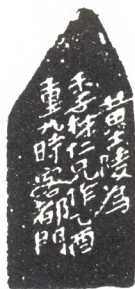 黃士陵為
季仁兄作乙酉
重九時客都門